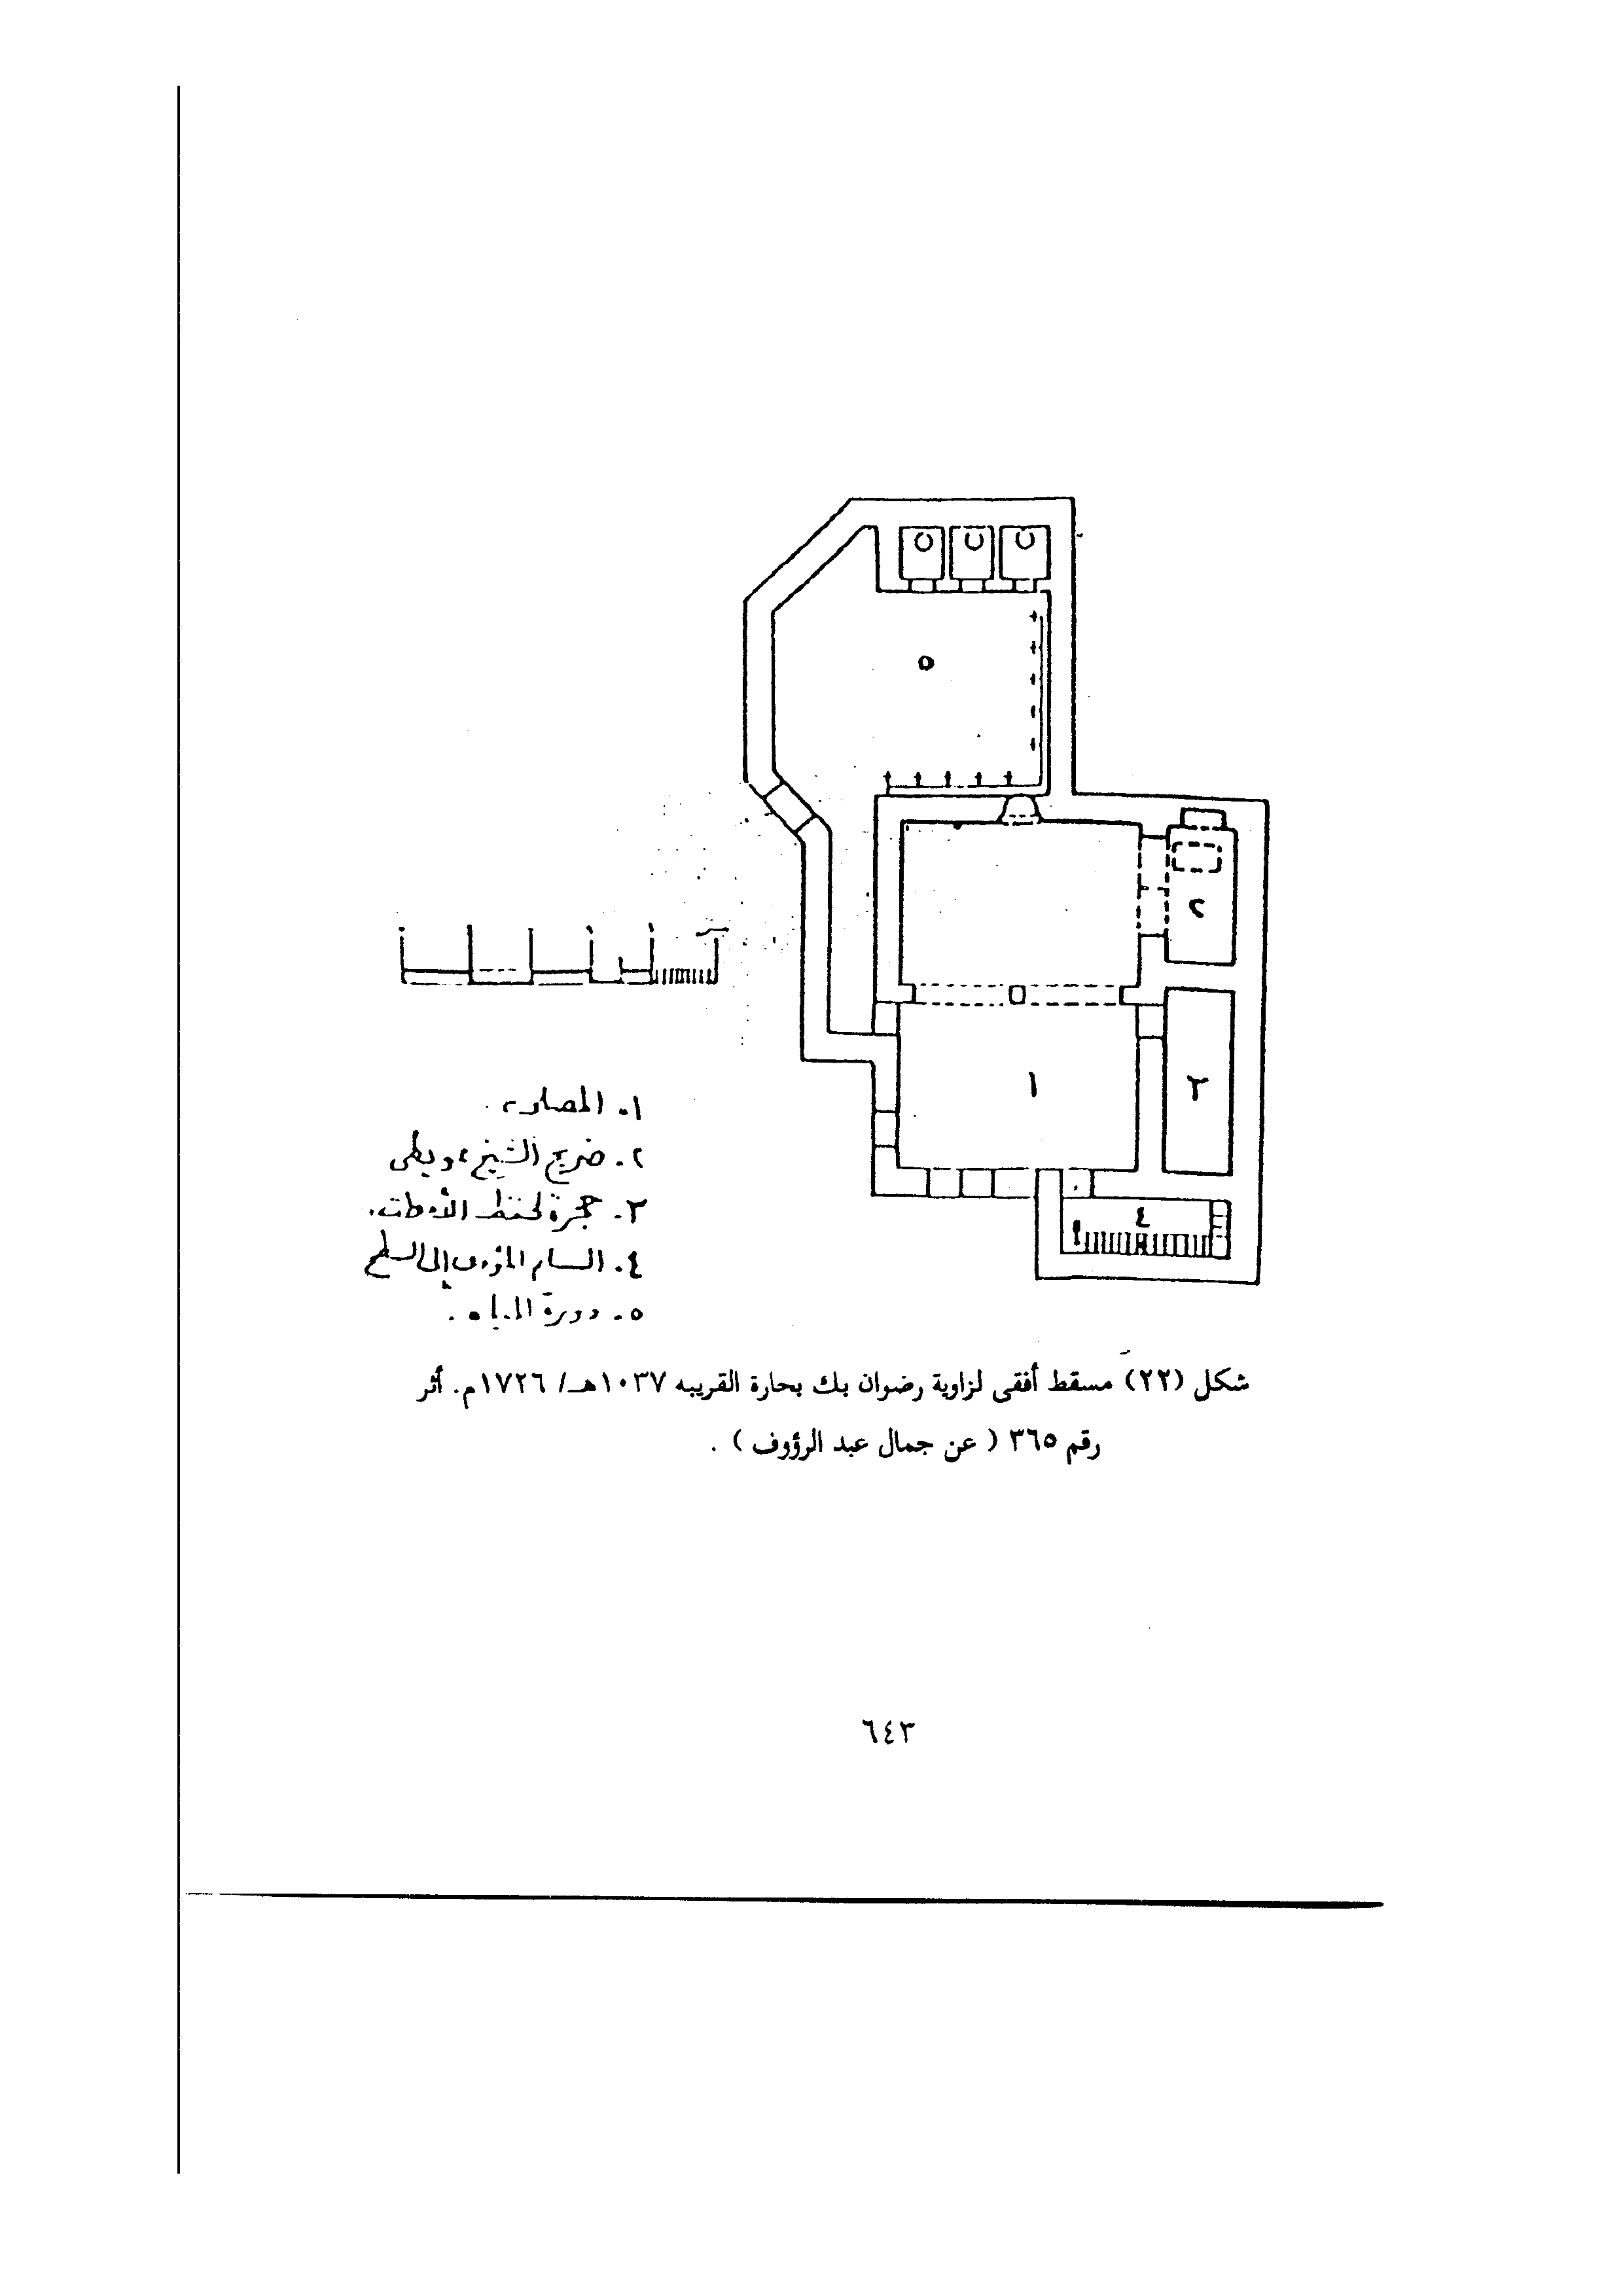 ٥
٢
١
٣
٤
١. المصلى
٢. ضريح الشيخ
٣. حجرة لحفظ
٤. السلم المؤدى إلى السطح
٥. دورة المياه .
شكل (٢٢) مسقط أفقى لزاوية رضوان بك بحارة القريبه ١٠٣٧هـ/ ١٧٢٦م. أثر
رقم ٣٦٥ ( عن جمال عبد الرؤوف ) .
٦٤٣